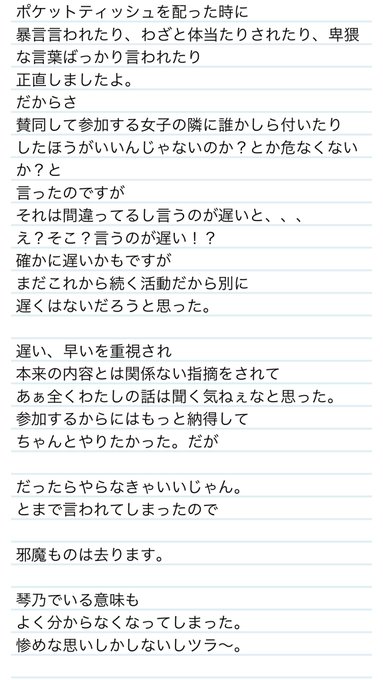 ポケットティッシュを配った時に
暴言言われたり、わざと体当たりされたり、卑猥
な言葉ばっかり言われたり
正直しましたよ。
だからさ
賛同して参加する女子の隣に誰かしら付いたり
したほうがいいんじゃないのか？とか危なくない
か？と
言ったのですが
それは間違ってるし言うのが遅いと、、、
え？そこ？言うのが遅い！？
確かに遅いかもですが
まだこれから続く活動だから別に
遅くはないだろうと思った。
遅い、早いを重視され
本来の内容とは関係ない指摘をされて
あぁ全くわたしの話は聞く気ねぇなと思った。
参加するからにはもっと納得して
ちゃんとやりたかった。だが
だったらやらなきゃいいじゃん。
とまで言われてしまったので
邪魔ものは去ります。
琴乃でいる意味も
よく分からなくなってしまった。
惨めな思いしかしないしツラ〜。